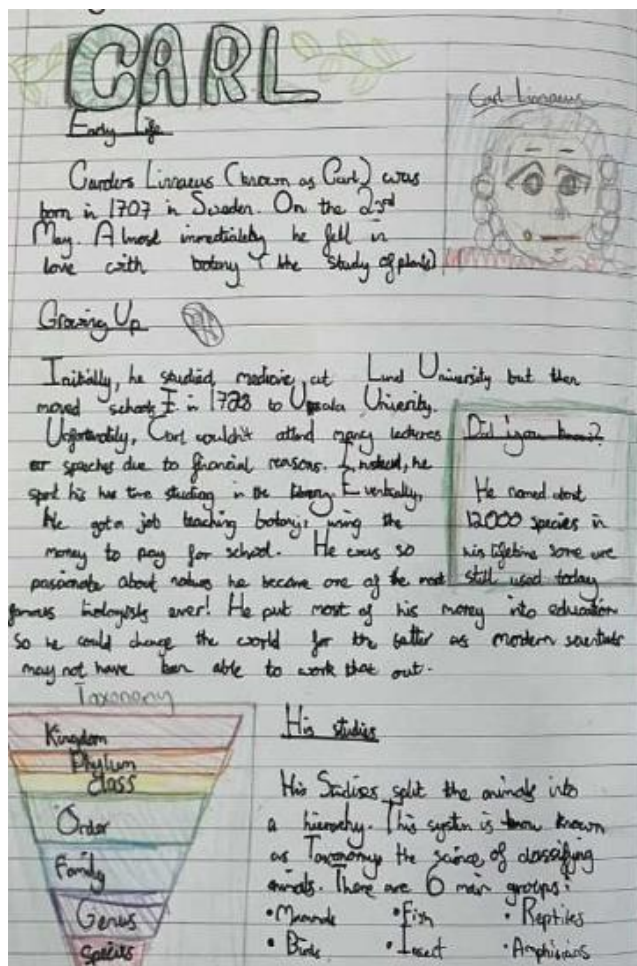 CARL
Carl Linnaeus
Early Life
Carolers Linnaeus (known as Carl) was
born in 1707 in Sweden. On the 23rd
May. Almost immediately he fell in
love with botany (the study of plants)
Growing Up
Initially, he studied medicine at Lund University but then
moved schools in 1728 to Upsala University.
Unfortunatly, Carl couldn't attend many lectures
or speeches due to financial reasons. Instead, he
spent his time studing in the library. Eventually,
He got a job teaching botany, using the
money to pay for school. He was so
passionate about nature he became one of the most
famous biologists ever! He put most of his money into education
so he could change the world for the better as modern scientists
may not have been able to work that out.
Did you know?
He named about
12000 species in
his lifetime some are
still used today
Taxonomy
Kingdom
Phylum
Class
Order
Family
Genus
Species
His studies
His Studies split the animals into
a hierarchy. This system is know known
as Taxonomy the science of classifying
animals. There are 6 main groups:
• Mammals • Fish • Reptiles
• Birds • Insect • Amphibians